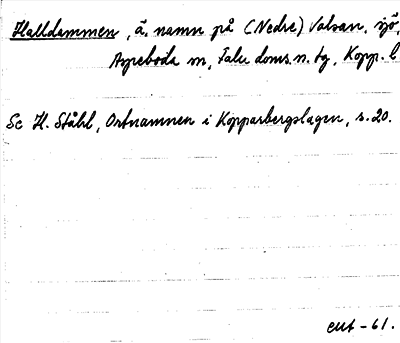 Halldammen, ä. namn på (Nedre) Valsan, sjö,
Aspeboda sn, Falu doms. n. tg, Kopp. l
Se H. Ståhl, Ortnamnen i Kopparbergslagen, s. 20.
-61.